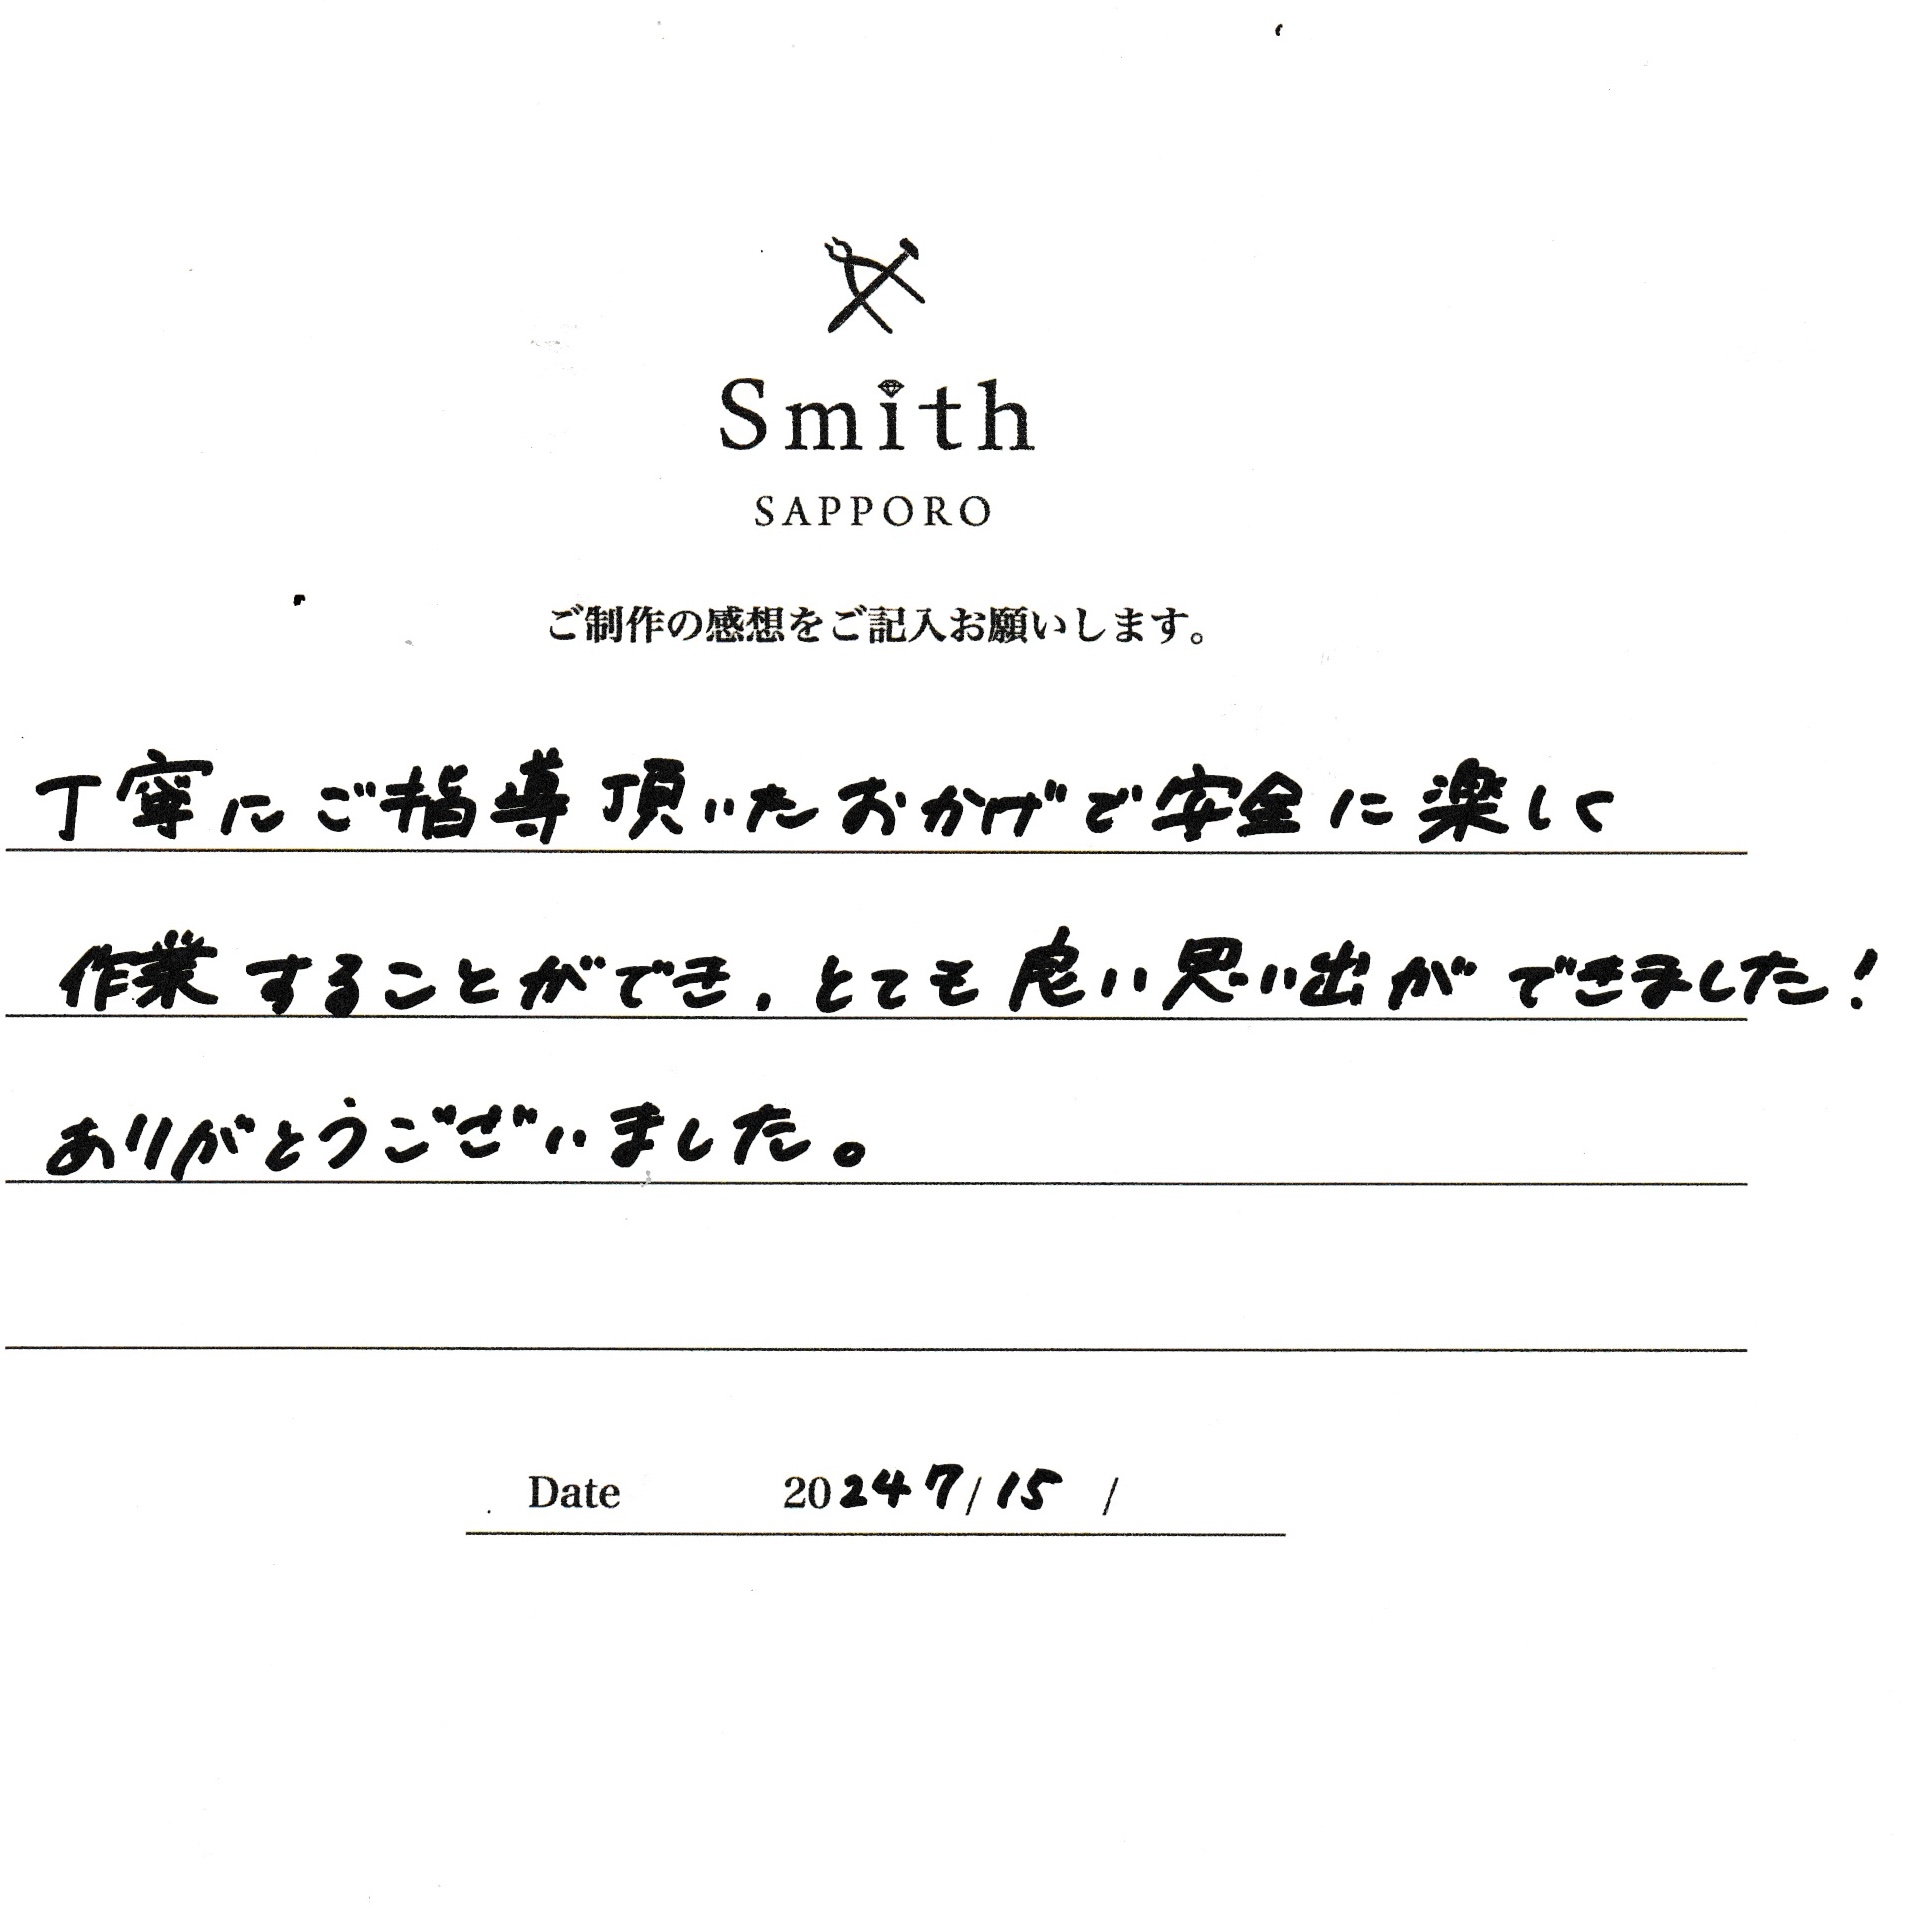 Smith
SAPPORO
ご制作の感想をご記入お願いします。
丁寧にご指導頂いたおかげで安全に楽しく
作業することができ、とても良い思い出ができました!
ありがとうございました。
Date 20247/15 /